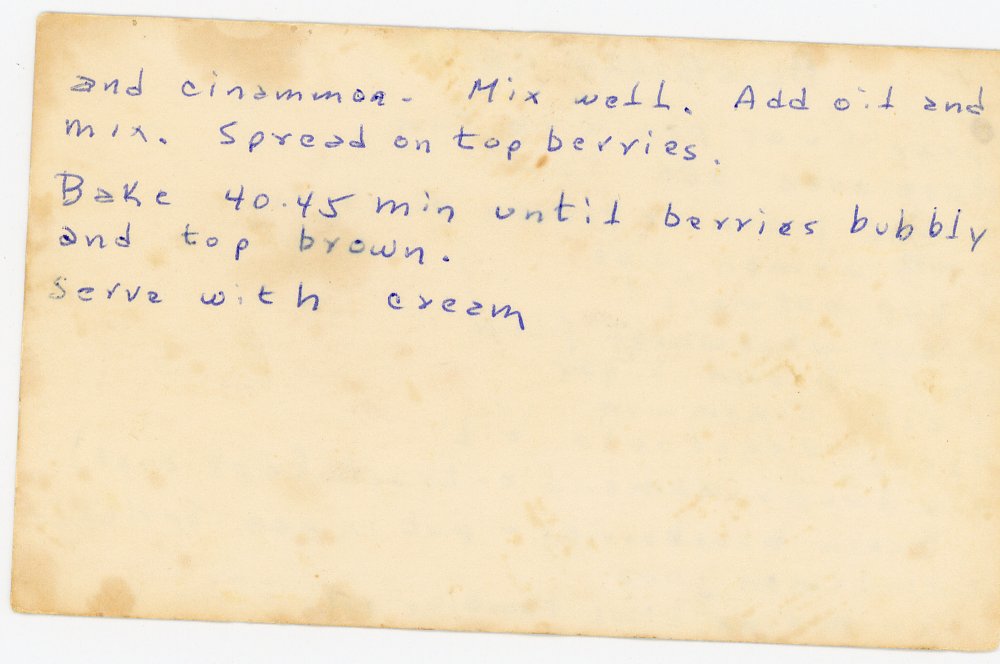 and cinammon. Mix well. Add oil and
mix. Spread on top berries.
Bake 40-45 min until berries bubbly
and top brown.
Serve with cream